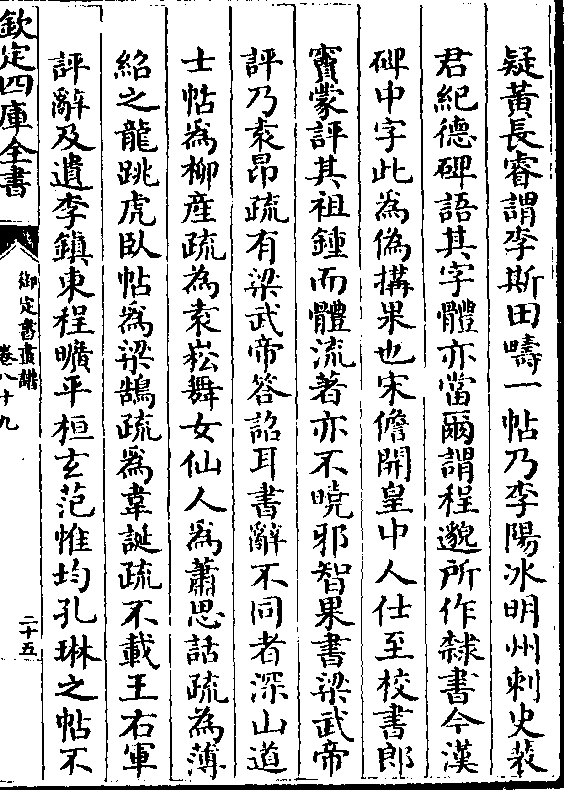 疑黃長睿謂李斯田疇一帖乃李陽冰明州刺史裴
君紀德碑語其字體亦當爾謂程邈所作隸書今漢
碑中字此為偽搆果也宋儋開皇中人仕至校書郎
竇蒙評其祖鍾而體流著亦不曉邪智果書梁武帝
評乃袁昂疏有梁武帝答詔耳書辭不同者深山道
士帖為柳產疏為袁崧舞女仙人為蕭思話疏為薄
紹之龍跳虎臥帖為梁鵠疏為韋誕疏不載王右軍
評辭及遺李鎮東程曠平桓玄范惟均孔琳之帖不
欽定四庫全書
御定書畫譜
卷八十九
二十五